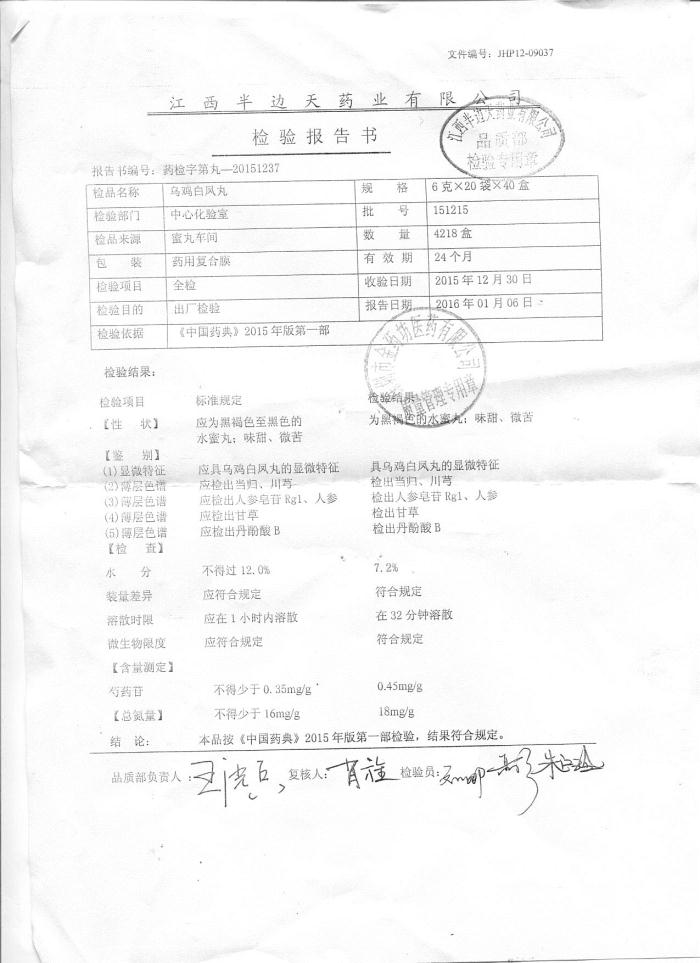 文件编号：JHP12-09037
江西半边天药业有限公司
检验报告书
江西半边天药业有限公司
品质部
检验专用章
报告书编号：药检字第丸—20151237
检品名称 乌鸡白凤丸 规 格 6克×20袋×40盒
检验部门 中心化验室 批 号 151215
检品来源 蜜丸车间 数 量 4218盒
包 装 药用复合膜 有 效 期 24个月
检验项目 全检 收验日期 2015年12月30日
检验目的 出厂检验 报告日期 2016年01月06日
检验依据 《中国药典》2015年版第一部
市金药坊医药有限公司
质量管理专用章
检验结果：
检验项目 标准规定 检验结果
【性 状】 应为黑褐色至黑色的 为黑褐色的水蜜丸；味甜、微苦
水蜜丸；味甜、微苦
【鉴 别】
(1)显微特征 应具乌鸡白凤丸的显微特征 具乌鸡白凤丸的显微特征
(2)薄层色谱 应检出当归、川芎 检出当归、川芎
(3)薄层色谱 应检出人参皂苷Rg1、人参 检出人参皂苷Rg1、人参
(4)薄层色谱 应检出甘草 检出甘草
(5)薄层色谱 应检出丹酚酸B 检出丹酚酸B
【检 查】
水 分 不得过12.0% 7.2%
装量差异 应符合规定 符合规定
溶散时限 应在1小时内溶散 在32分钟溶散
微生物限度 应符合规定 符合规定
【含量测定】
芍药苷 不得少于0.35mg/g 0.45mg/g
【总氮量】 不得少于16mg/g 18mg/g
结 论： 本品按《中国药典》2015年版第一部检验，结果符合规定。
品质部负责人： 复核人： 检验员：